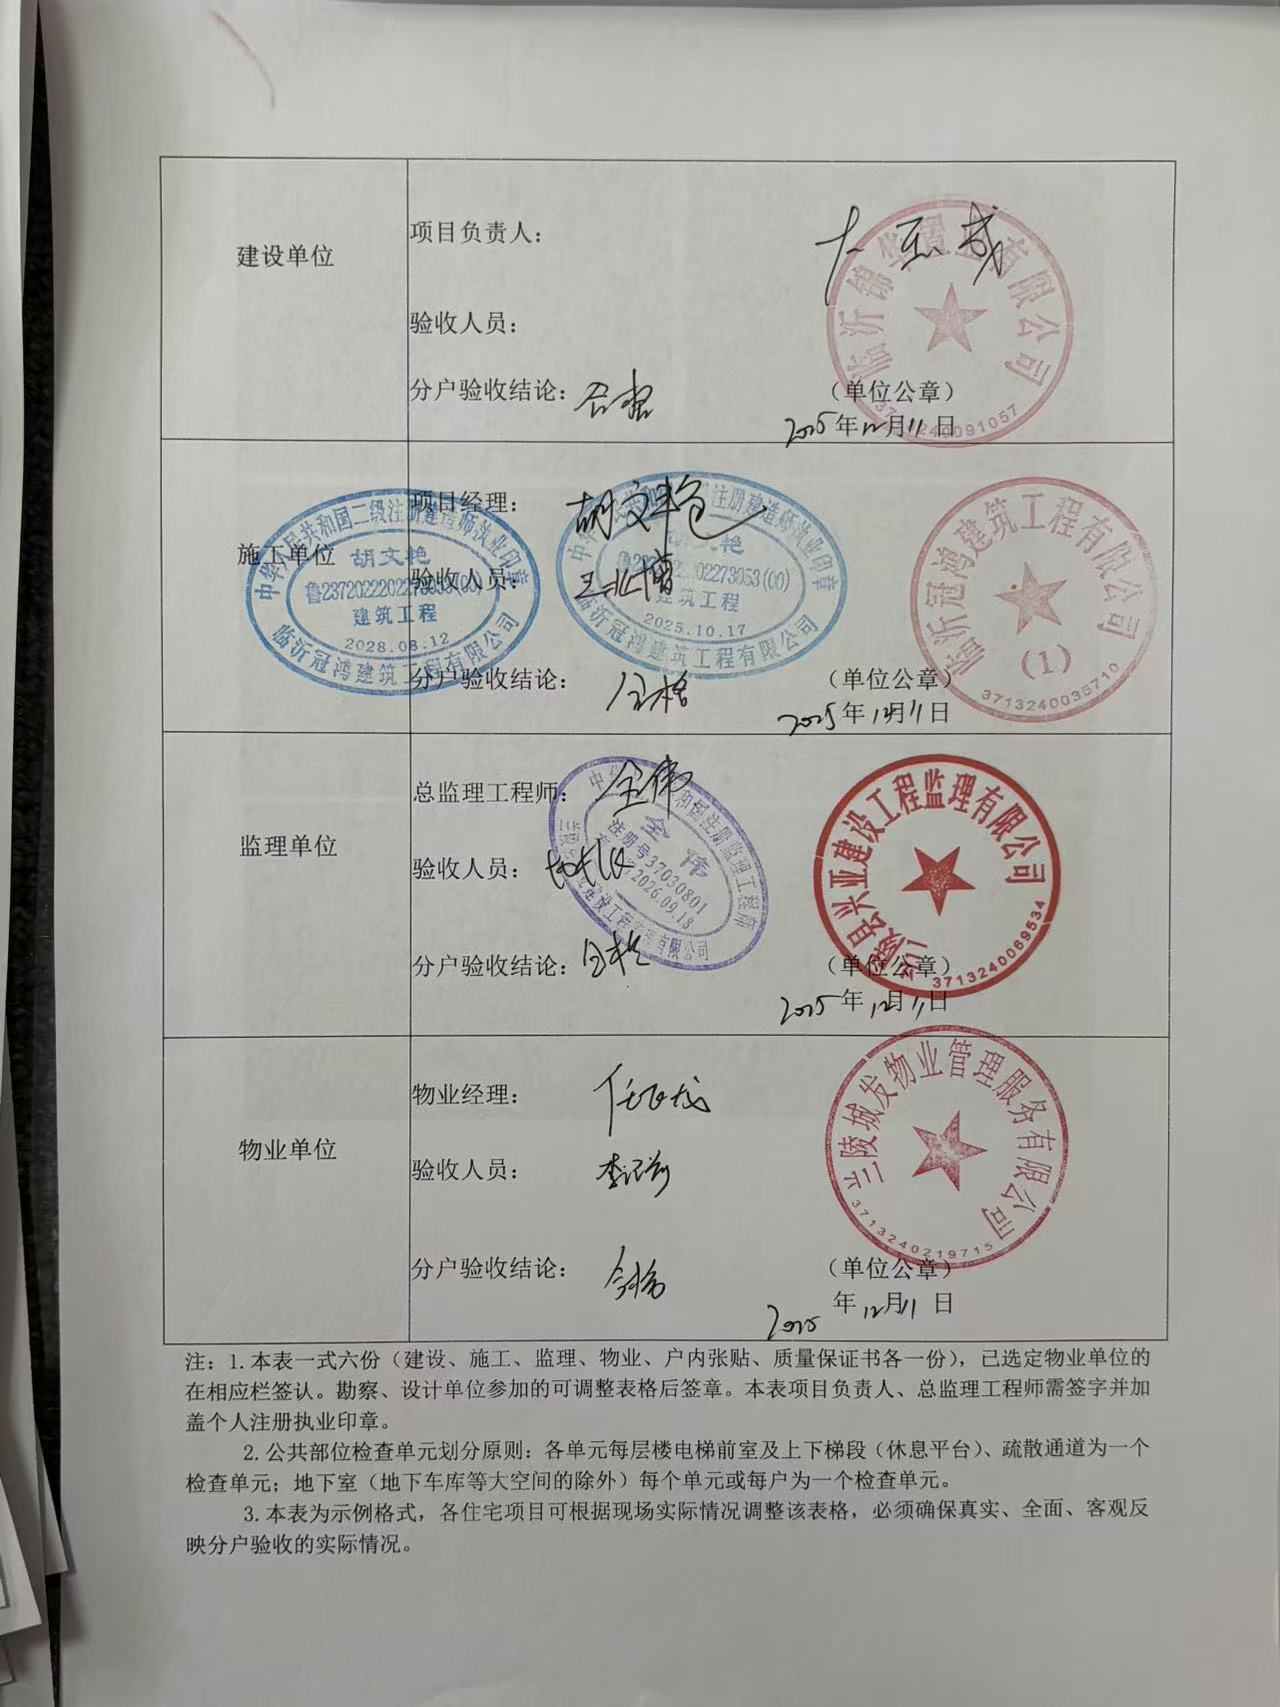 建设单位
项目负责人：
验收人员：
分户验收结论：合格
（单位公章）
2025年12月11日
临沂锦华置业有限公司
施工单位
项目经理：胡文艳
验收人员：王兆博
分户验收结论：合格
（单位公章）
2025年12月11日
中华人民共和国二级注册建造师执业印章
胡文艳
鲁2372022202273053(00)
建筑工程
2028.08.12
临沂冠鸿建筑工程有限公司
注册建造师执业印章
02273053(00)
建筑工程
2025.10.17
临沂冠鸿建筑工程有限公司
临沂冠鸿建筑工程有限公司
(1)
3713240035710
监理单位
总监理工程师：全伟
验收人员：
分户验收结论：合格
（单位公章）
2025年12月11日
全伟
注册号37030801
2026.09.18
县兴亚建设工程监理有限公司
3713240069534
物业单位
物业经理：
验收人员：
分户验收结论：合格
（单位公章）
2025年12月11日
兰陵城发物业管理服务有限公司
3713240219715
注：1.本表一式六份（建设、施工、监理、物业、户内张贴、质量保证书各一份），已选定物业单位的
在相应栏签认。勘察、设计单位参加的可调整表格后签章。本表项目负责人、总监理工程师需签字并加
盖个人注册执业印章。
2.公共部位检查单元划分原则：各单元每层楼电梯前室及上下梯段（休息平台）、疏散通道为一个
检查单元；地下室（地下车库等大空间的除外）每个单元或每户为一个检查单元。
3.本表为示例格式，各住宅项目可根据现场实际情况调整该表格，必须确保真实、全面、客观反
映分户验收的实际情况。